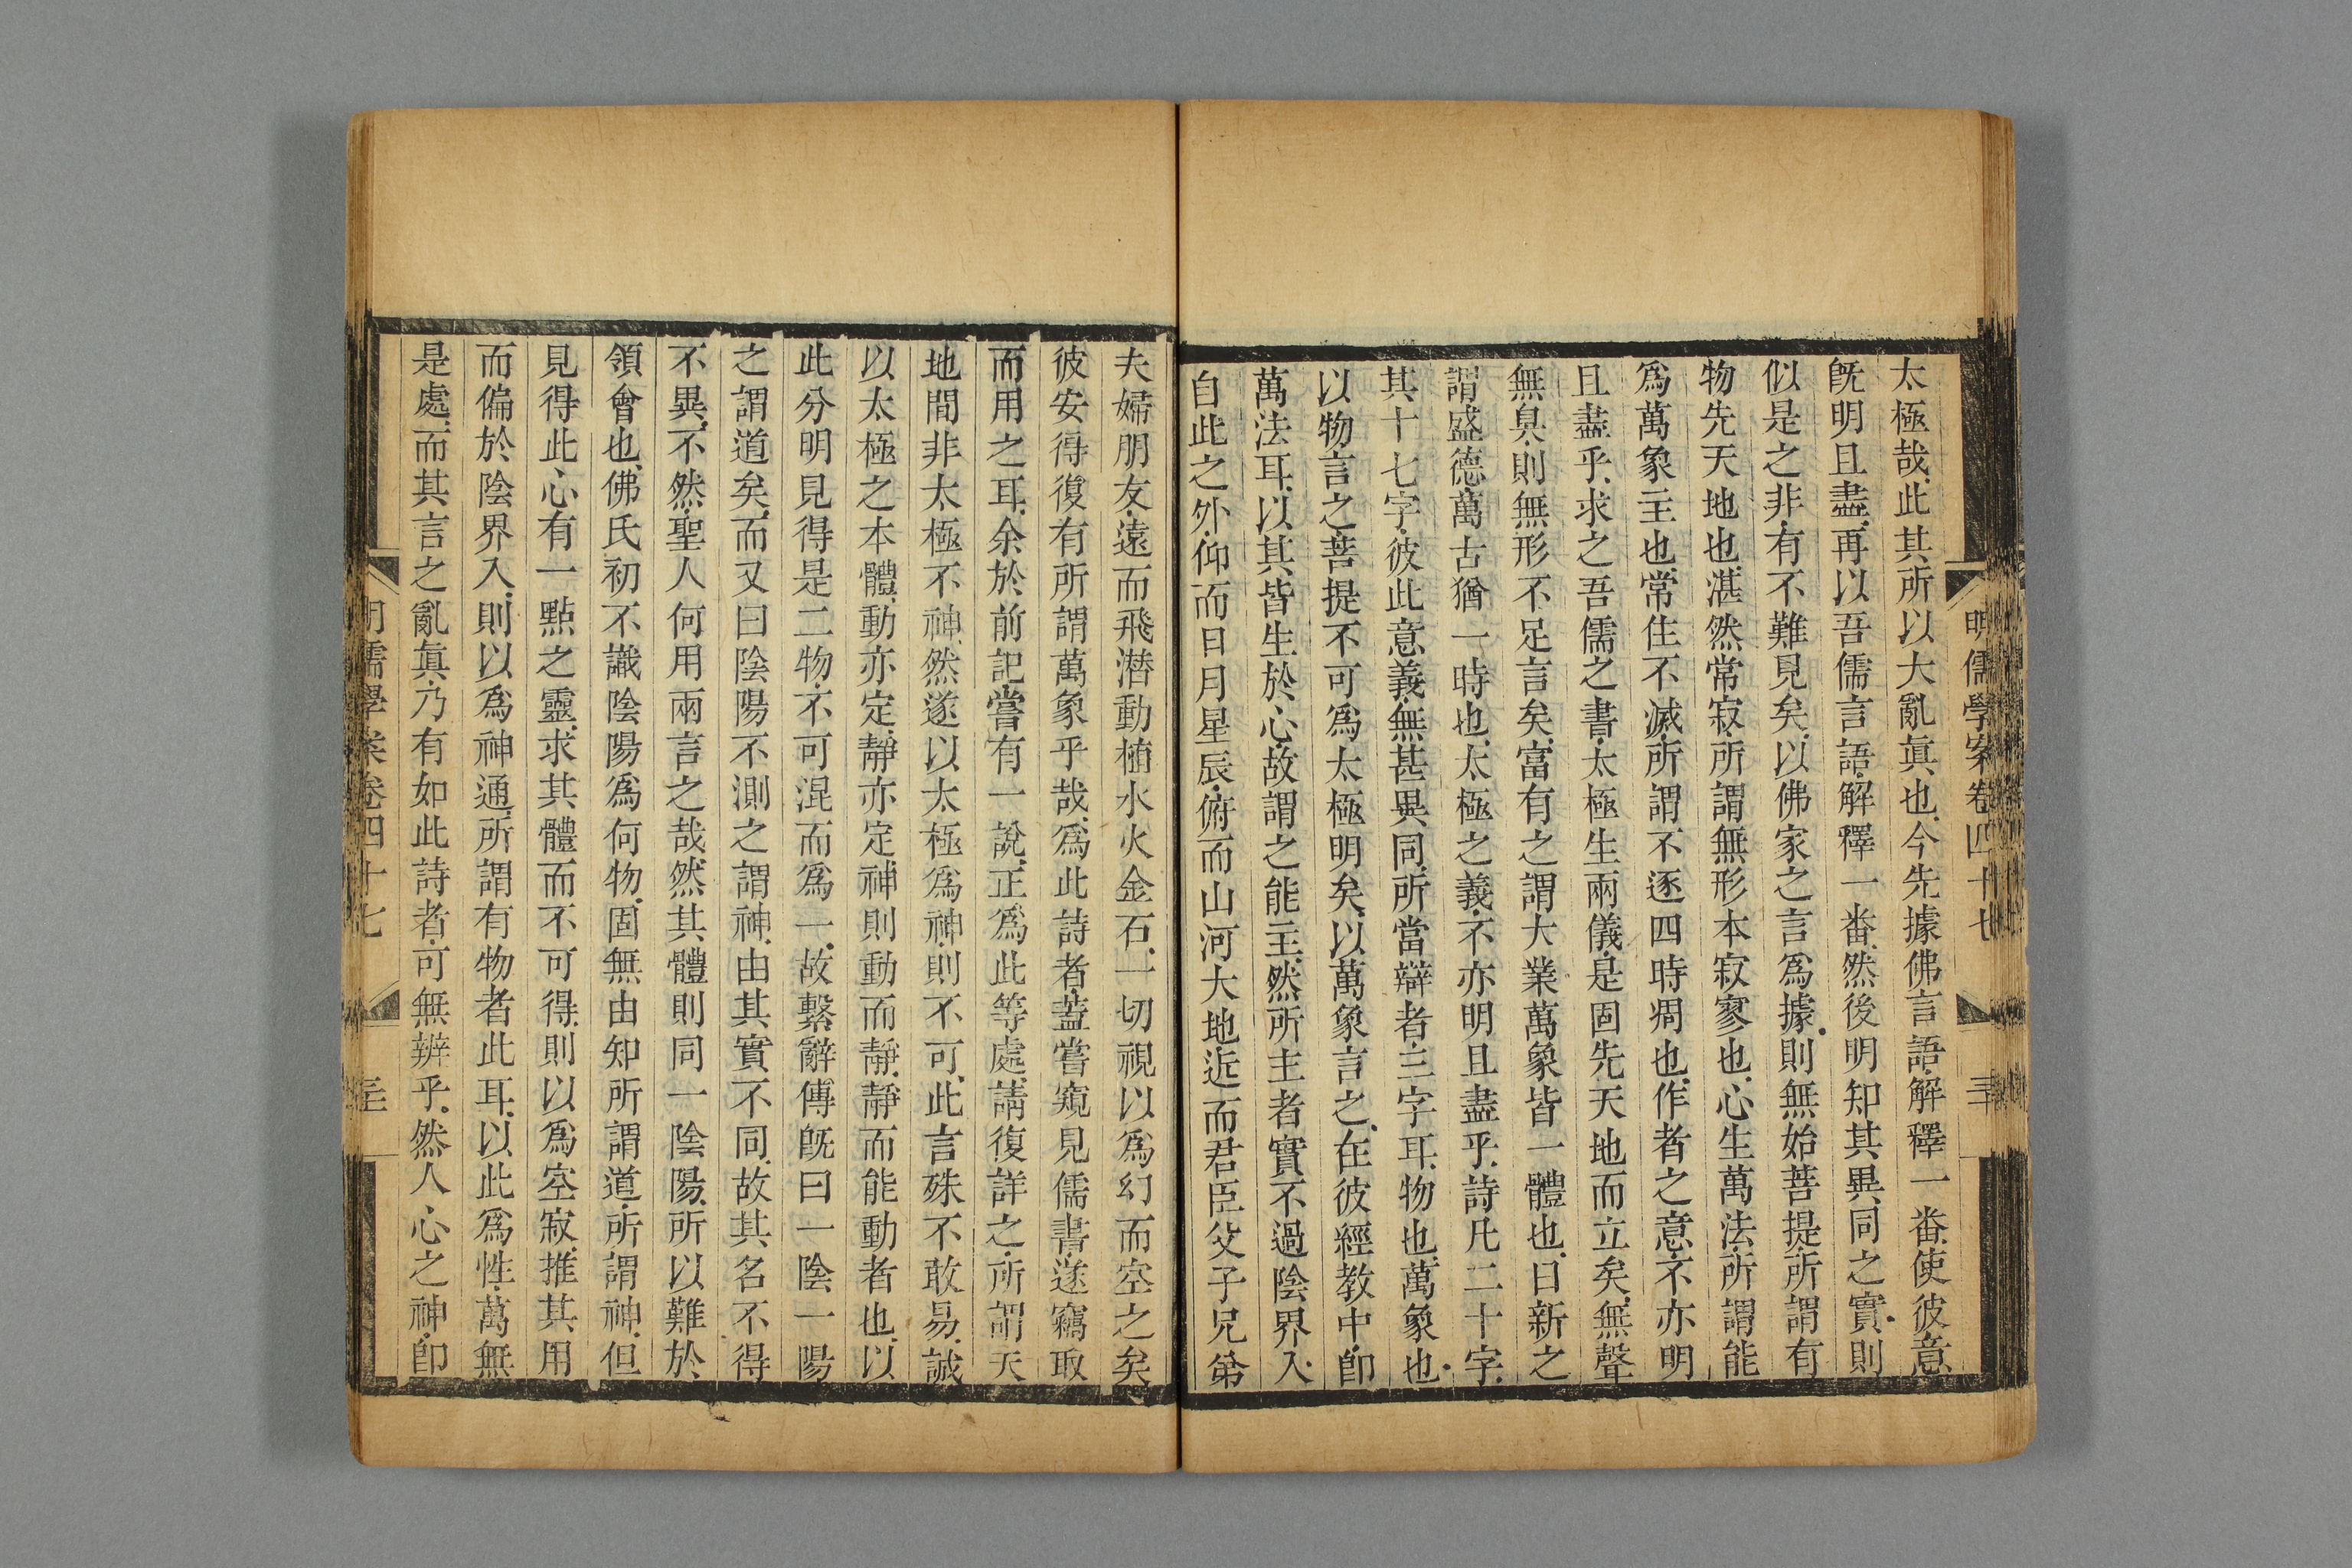 明儒學案卷四十七 三十
太極哉此其所以大亂眞也今先據佛言語解釋一番使彼意
旣明且盡再以吾儒言語解釋一番然後明知其異同之實則
似是之非有不難見矣以佛家之言爲據則無始菩提所謂有
物先天地也湛然常寂所謂無形本寂寥也心生萬法所謂能
爲萬象主也常住不滅所謂不逐四時凋也作者之意不亦明
且盡乎求之吾儒之書太極生兩儀是固先天地而立矣無聲
無臭則無形不足言矣富有之謂大業萬象皆一體也日新之
謂盛德萬古猶一時也太極之義不亦明且盡乎詩凡二十字
其十七字彼此意義無甚異同所當辯者三字耳物也萬象也
以物言之菩提不可爲太極明矣以萬象言之在彼經教中卽
萬法耳以其皆生於心故謂之能主然所主者實不過陰界入
自此之外仰而日月星辰俯而山河大地近而君臣父子兄弟
夫婦朋友遠而飛潛動植水火金石一切視以爲幻而空之矣
彼安得復有所謂萬象乎哉爲此詩者蓋嘗窺見儒書遂竊取
而用之耳余於前記嘗有一說正爲此等處請復詳之所謂天
地間非太極不神然遂以太極爲神則不可此言殊不敢易誠
以太極之本體動亦定靜亦定神則動而靜靜而能動者也以
此分明見得是二物不可混而爲一故繫辭傳旣曰一陰一陽
之謂道矣而又曰陰陽不測之謂神由其實不同故其名不得
不異不然聖人何用兩言之哉然其體則同一陰陽所以難於
領會也佛氏初不識陰陽爲何物固無由知所謂道所謂神但
見得此心有一點之靈求其體而不可得則以爲空寂推其用
而偏於陰界入則以爲神通所謂有物者此耳以此爲性萬無
是處而其言之亂眞乃有如此詩者可無辨乎然人心之神卽
明儒學案卷四十七